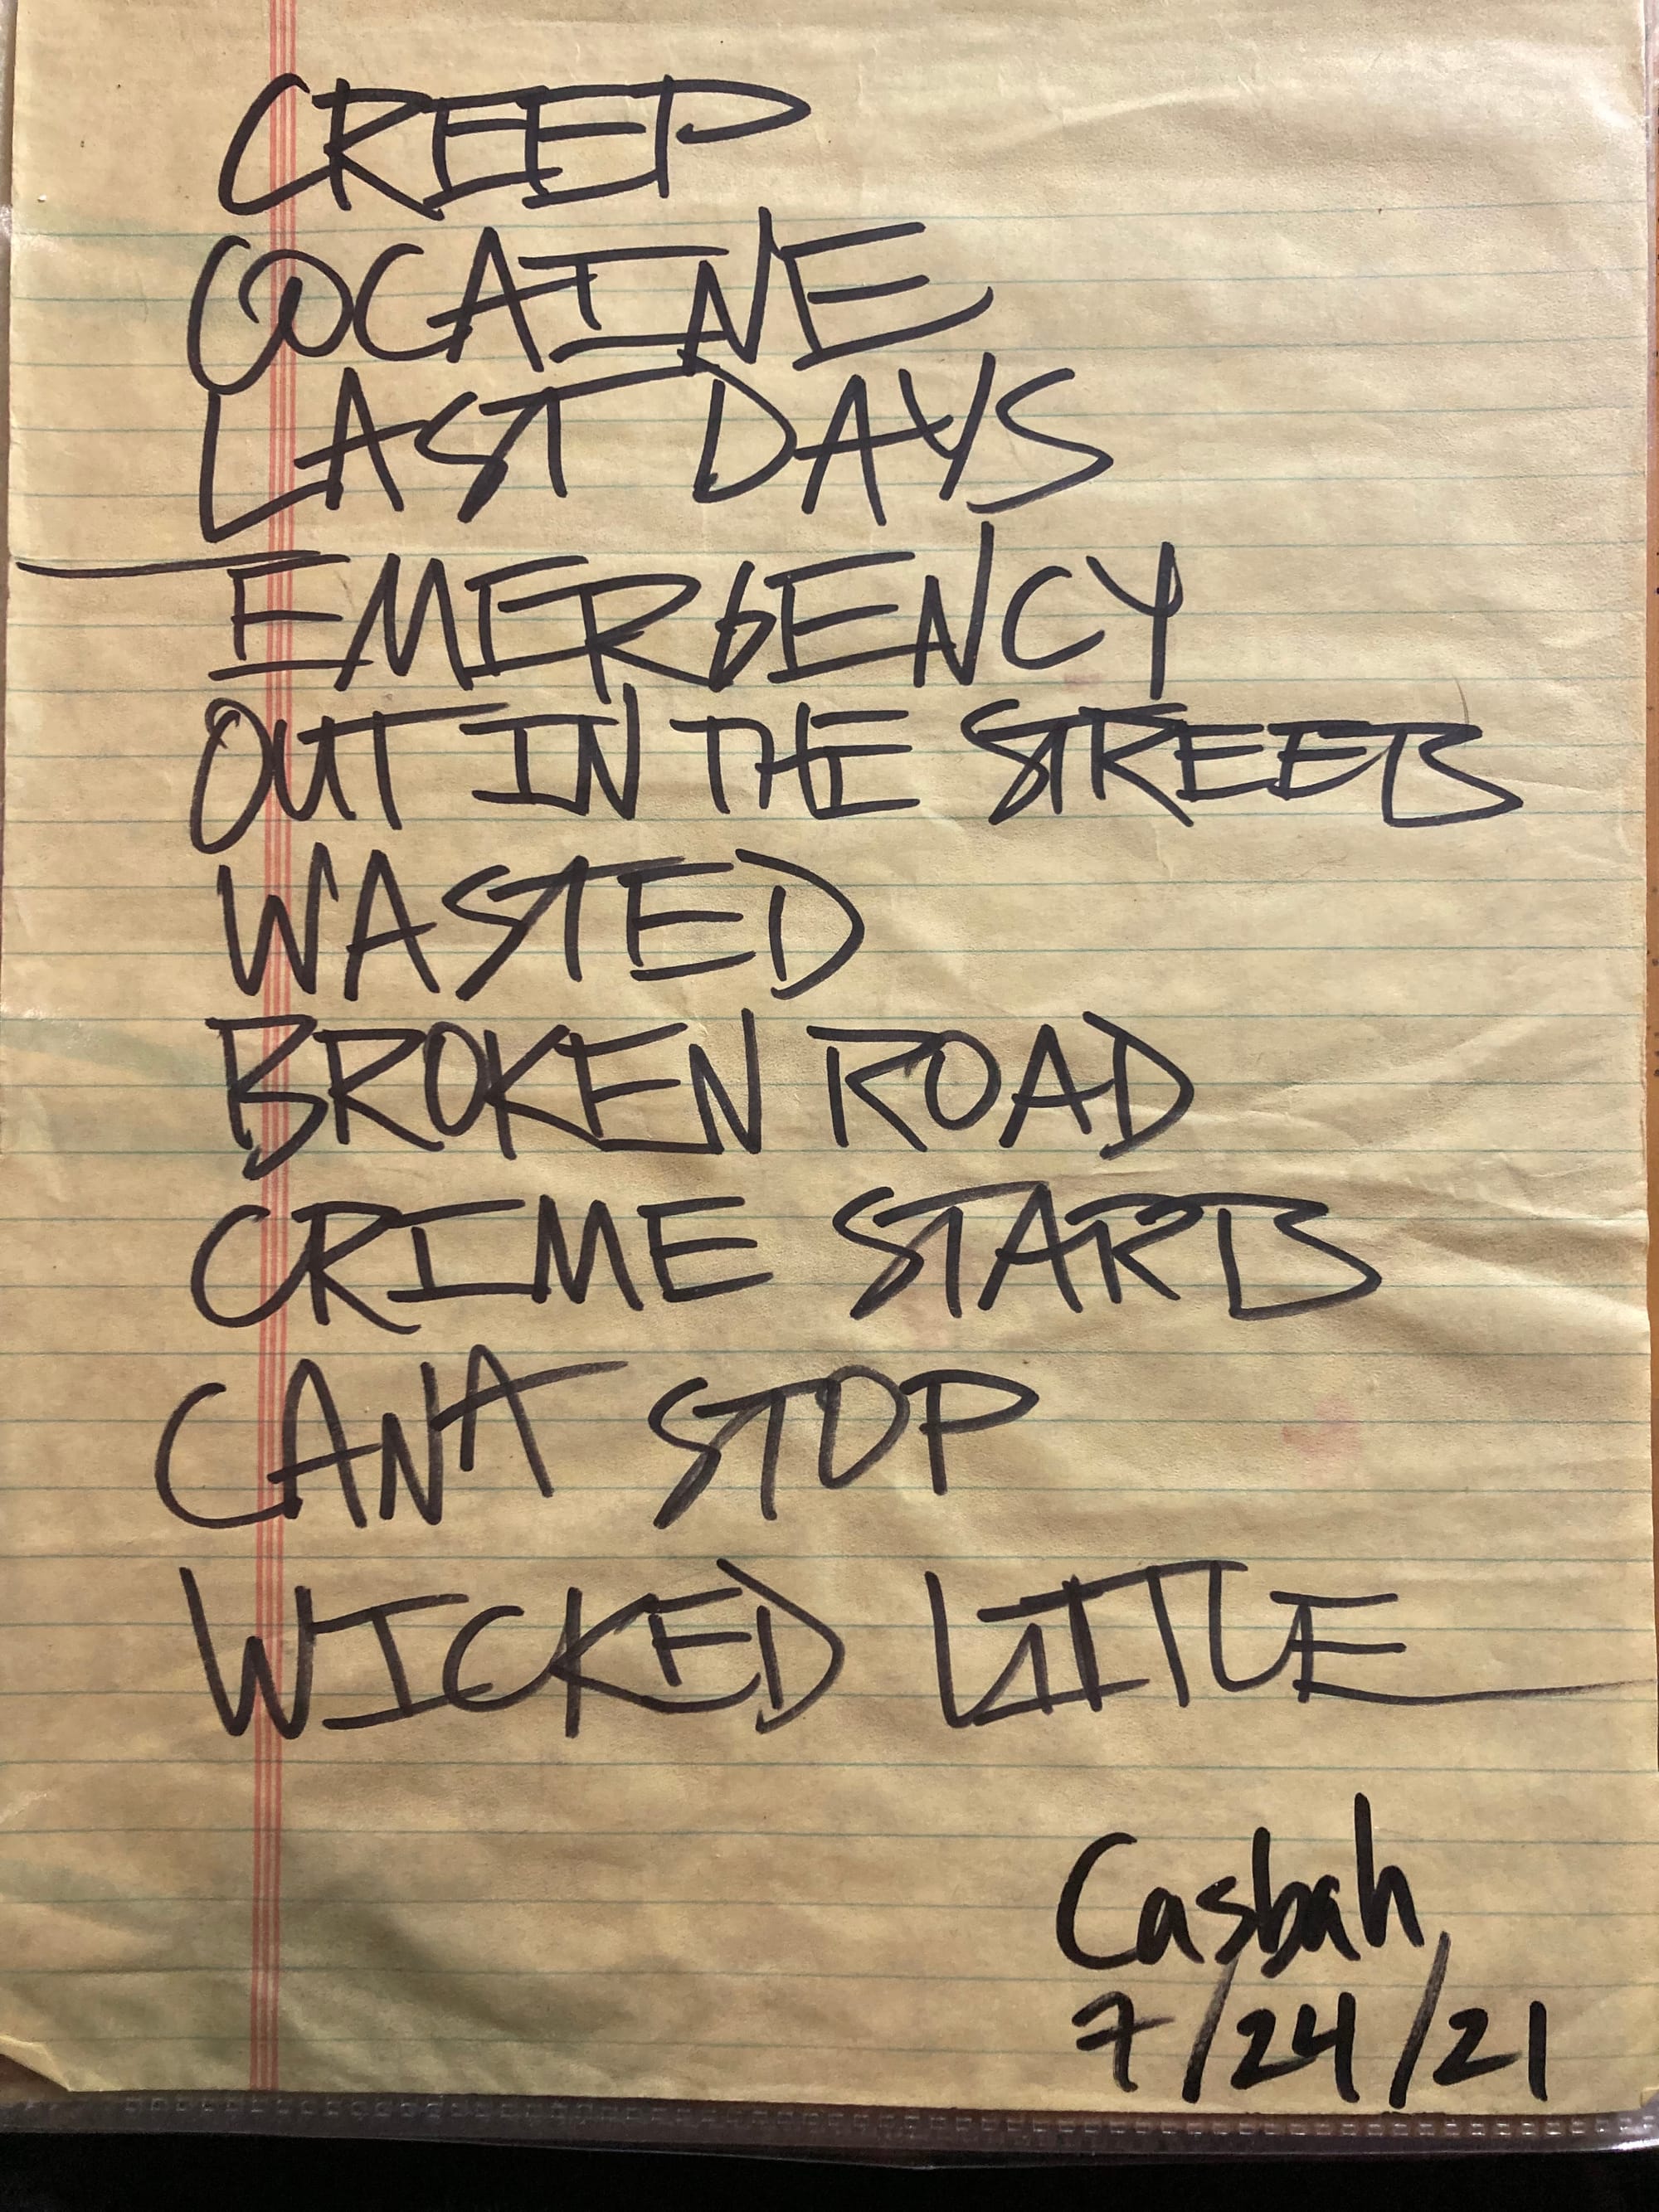 CREEP
COCAINE
LAST DAYS
EMERGENCY
OUT IN THE STREETS
WASTED
BROKEN ROAD
CRIME STARTS
CAN'T STOP
WICKED LITTLE
Casbah
7/24/21